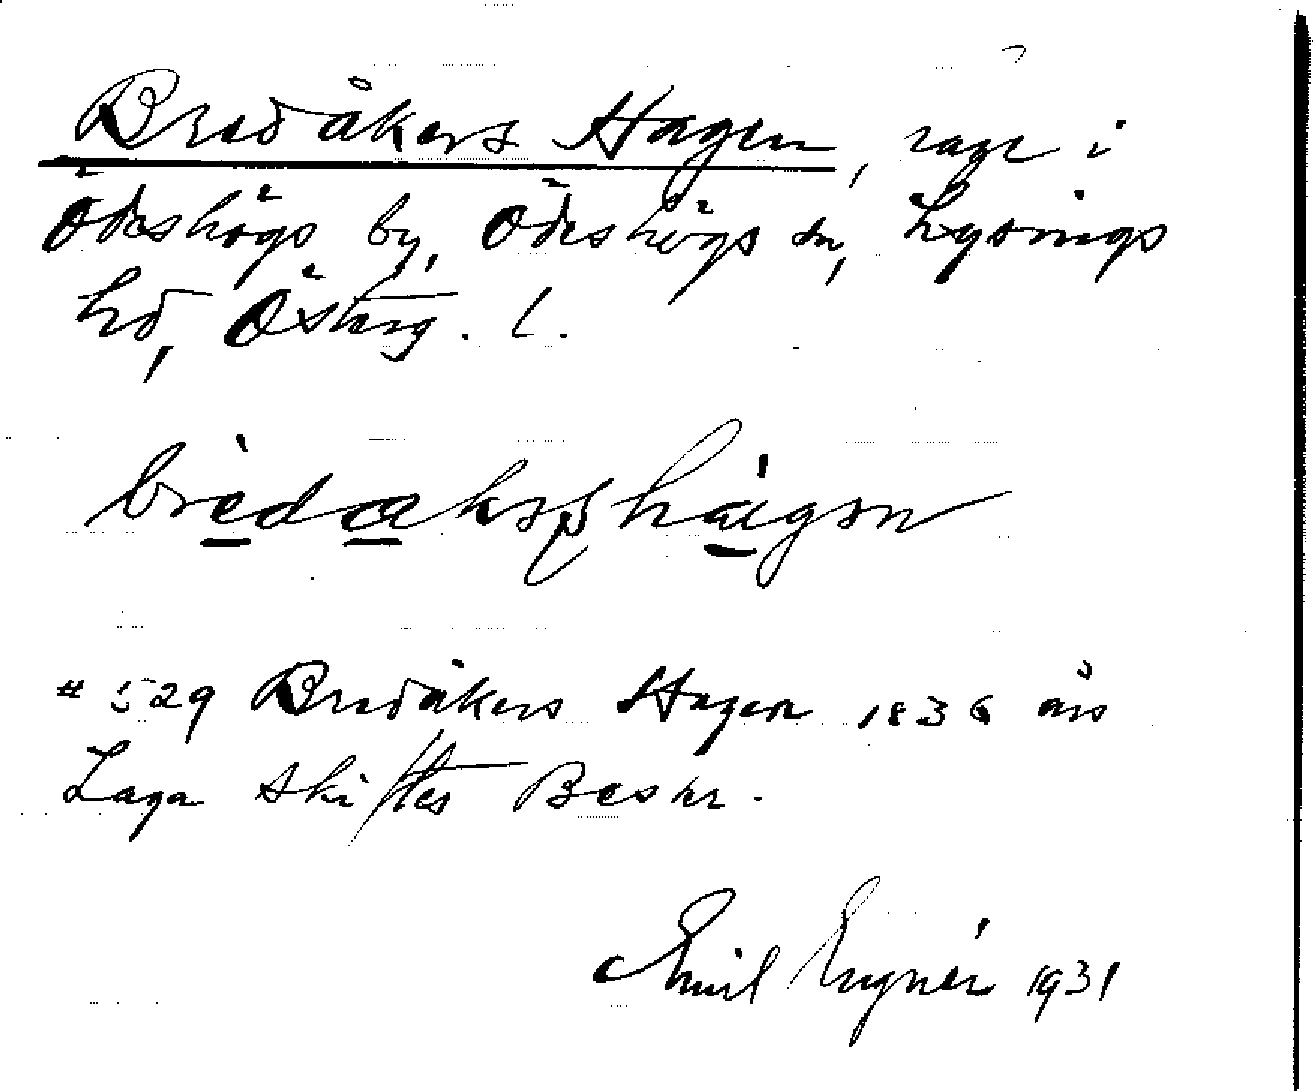 Bredåkers Hagen, äga i
Ödeshögs by, Ödeshögs sn, Lysings
hd, Österg. l.
# 529 Bredåkers Hagen 1836 års
Laga Skiftes Beskr.
Emil 1931